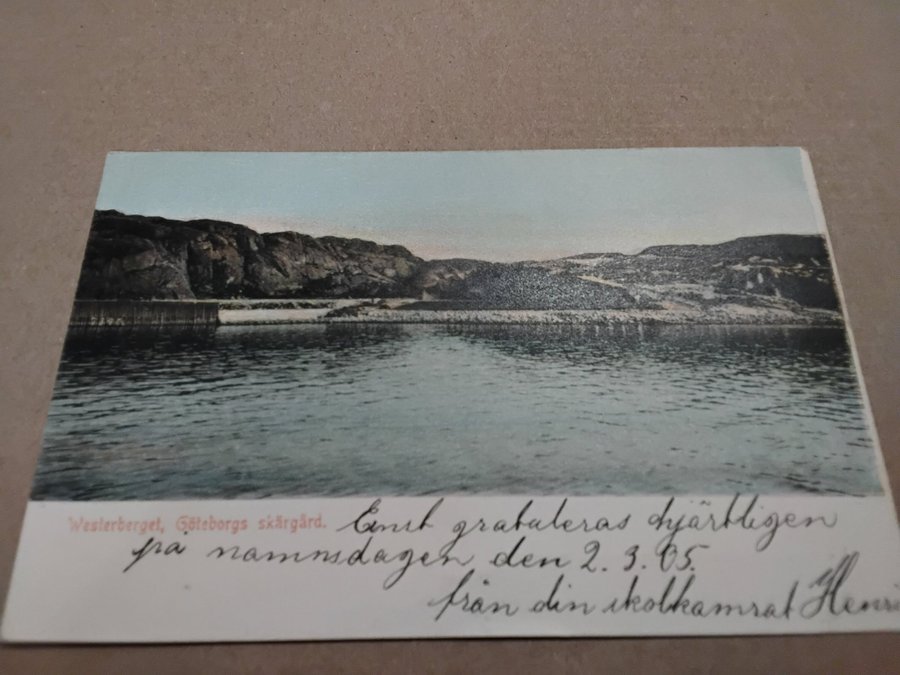 Westerberget, Göteborgs skärgård.
Ernst gratuleras hjärtligen
på namnsdagen den 2.3.05.
från din skolkamrat Henri